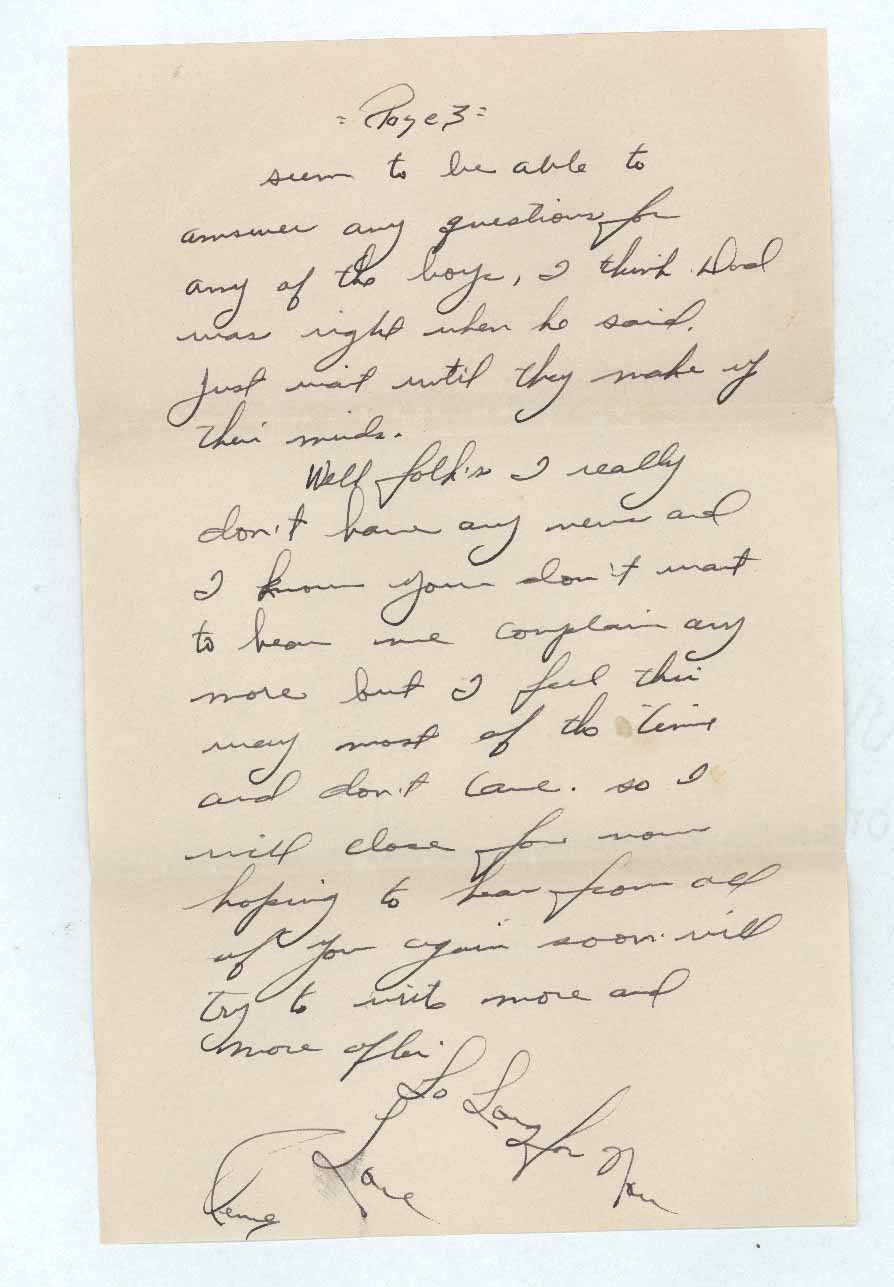 = Page 3 =
seem to be able to
answer any questions for
any of the boys, I think Dad
was right when he said.
Just wait until they make up
their minds.
Well folk's I really
don't have any news and
I know your don't want
to hear me complain any
more but I feel this
way most of the time
and don't care. so I
will close for now
hoping to hear from all
of you again soon. will
try to write more and
more often.
So Long for Now
Love